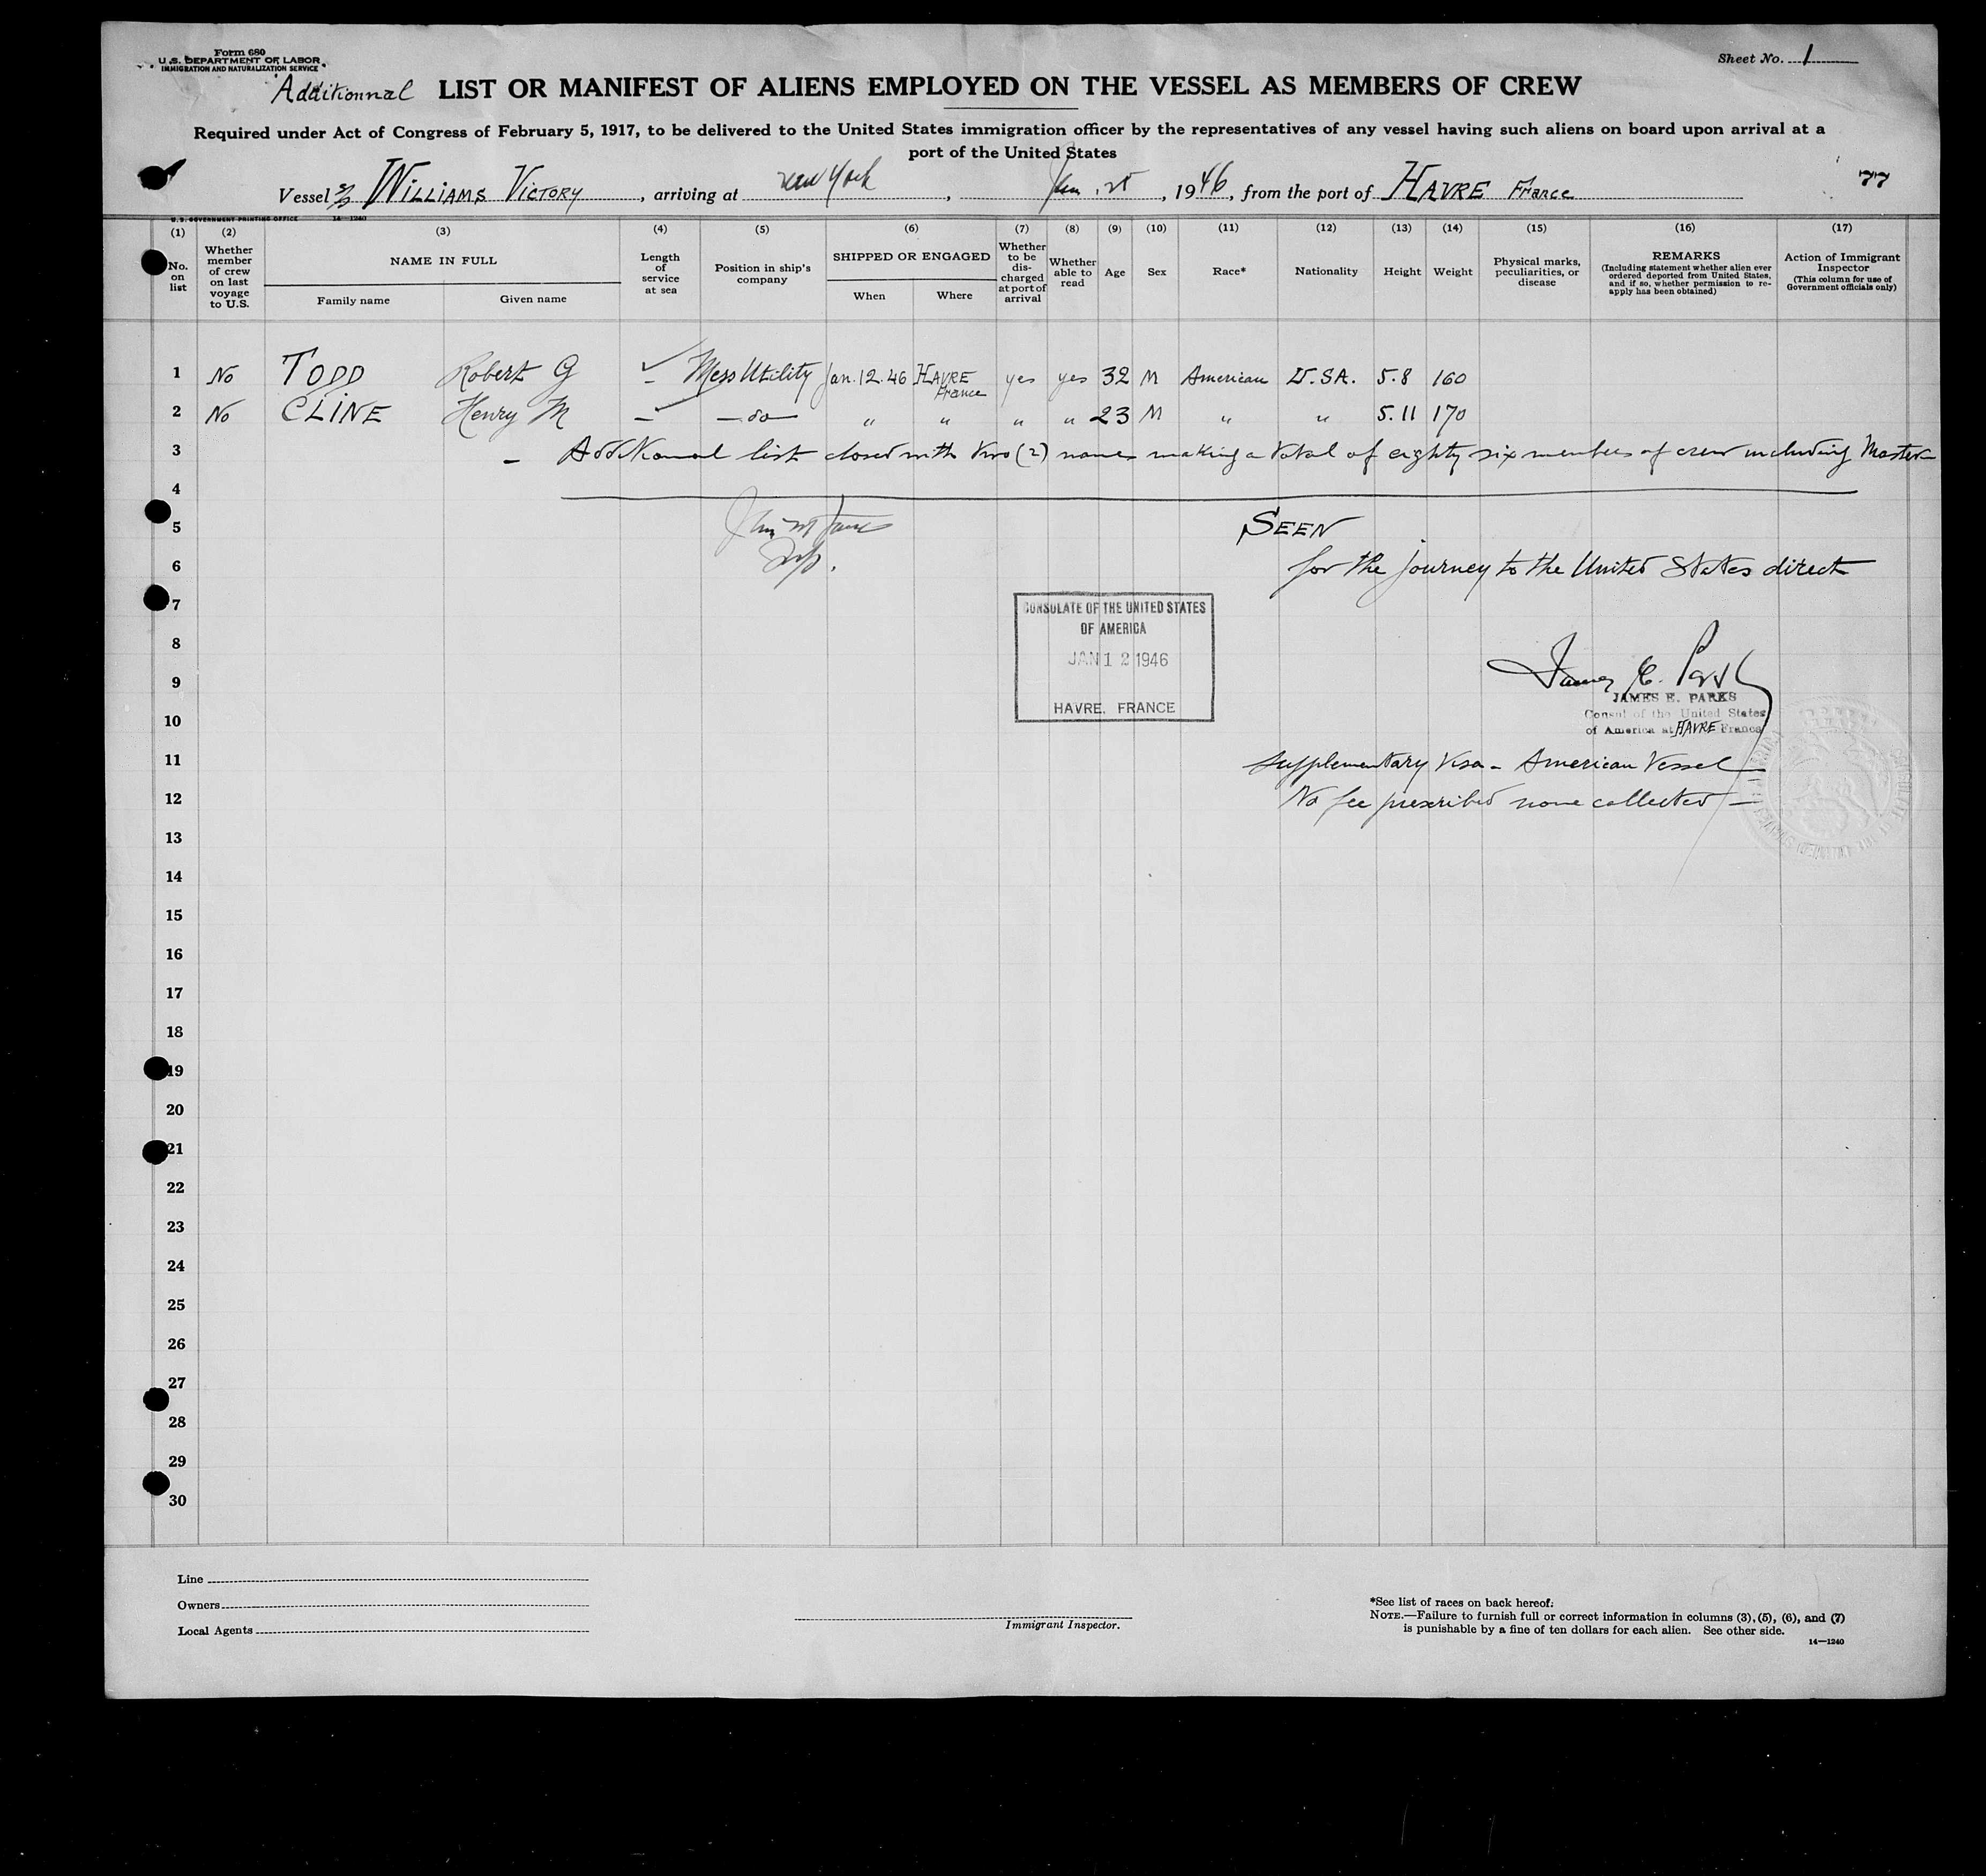 Form 680
U.S. DEPARTMENT OF LABOR
IMMIGRATION AND NATURALIZATION SERVICE
Sheet No. 1
Additionnal LIST OR MANIFEST OF ALIENS EMPLOYED ON THE VESSEL AS MEMBERS OF CREW
Required under Act of Congress of February 5, 1917, to be delivered to the United States immigration officer by the representatives of any vessel having such aliens on board upon arrival at a
port of the United States
77
Vessel S/S WILLIAMS VICTORY, arriving at New York, Jan. 25, 1946, from the port of HAVRE France
U.S. GOVERNMENT PRINTING OFFICE 14—1240
(1) (2) (3) (4) (5) (6) (7) (8) (9) (10) (11) (12) (13) (14) (15) (16) (17)
No. on list
Whether member of crew on last voyage to U.S.
NAME IN FULL
Family name Given name
Length of service at sea
Position in ship's company
SHIPPED OR ENGAGED
When Where
Whether to be discharged at port of arrival
Whether able to read
Age
Sex
Race*
Nationality
Height
Weight
Physical marks, peculiarities, or disease
REMARKS
(Including statement whether alien ever ordered deported from United States, and if so, whether permission to reapply has been obtained)
Action of Immigrant Inspector
(This column for use of Government officials only)
1 No TODD Robert G ✓ - Mess Utility Jan. 12. 46 HAVRE France yes yes 32 M American U.SA. 5.8 160
2 No CLINE Henry M -✓ — do — " " " " 23 M " " 5.11 170
3 - Additionnal list closed with two (2) names making a total of eighty six members of crew including Master
4
5 SEEN
6 for the journey to the United States direct
7
CONSULATE OF THE UNITED STATES
OF AMERICA
JAN 12 1946
HAVRE, FRANCE
8
9 James E. Parks
JAMES E. PARKS
10 Consul of the United States
of America at HAVRE France
11 Supplementary Visa - American Vessel
12 No fee prescribed none collected —
13
14
15
16
17
18
19
20
21
22
23
24
25
26
27
28
29
30
Line
Owners
Local Agents
Immigrant Inspector.
*See list of races on back hereof.
NOTE.—Failure to furnish full or correct information in columns (3), (5), (6), and (7)
is punishable by a fine of ten dollars for each alien. See other side.
14—1240